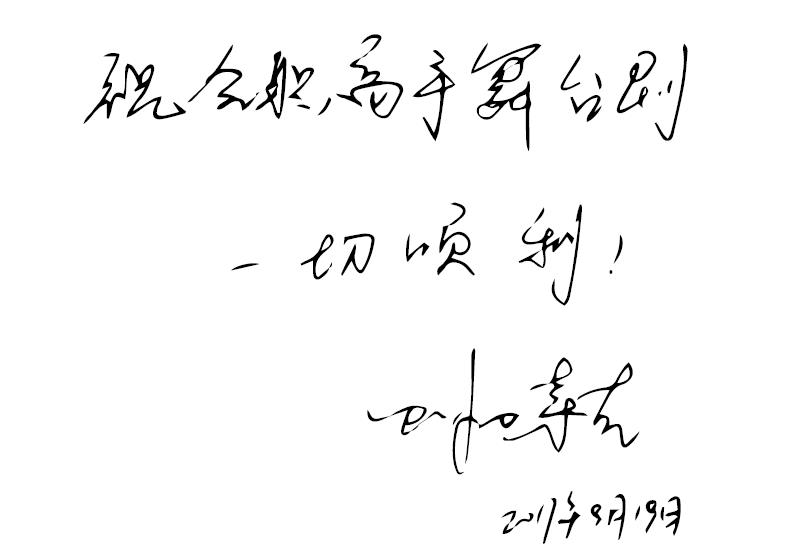 祝全职高手舞台剧
一切顺利!
2017年9月19日